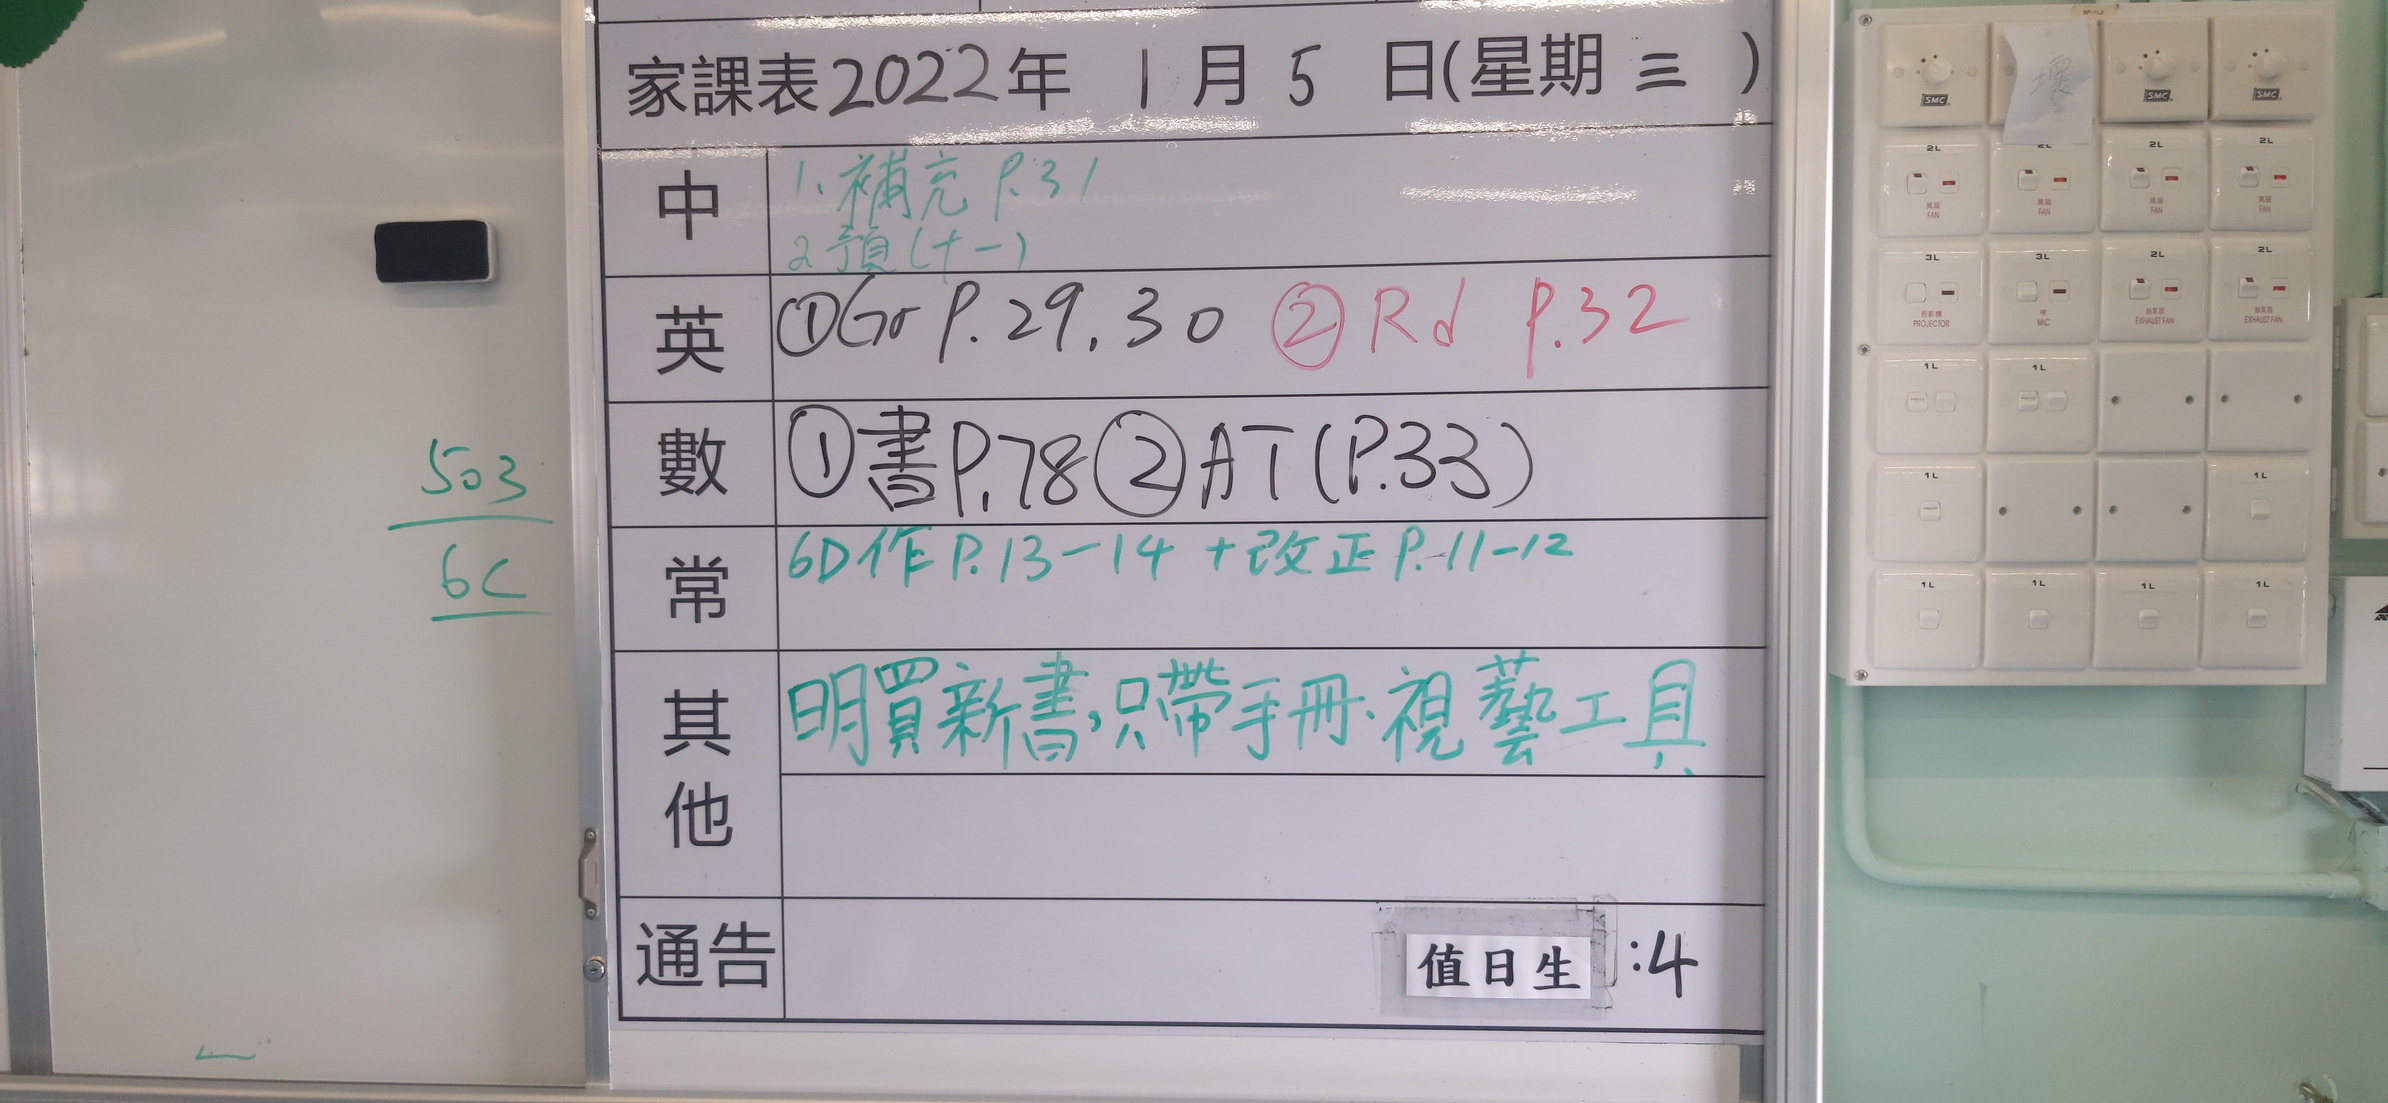 家課表2022年 1月5日(星期三)
中
1.補充 P.31
2.預(十一)
英
①Gr P.29,30 ②Rd P.32
數
①書P.78②AT(P.33)
常
6D作P.13-14 +改正P.11-12
其他
明買新書,只帶手冊.視藝工具
通告
值日生:4
503
6C
壞
SMC SMC SMC
2L 2L 2L 2L
風扇 風扇 風扇 風扇
FAN FAN FAN FAN
3L 3L 2L 2L
投影機 咪 抽氣扇 抽氣扇
PROJECTOR MIC EXHAUST FAN EXHAUST FAN
1L 1L
1L 1L
1L 1L 1L 1L